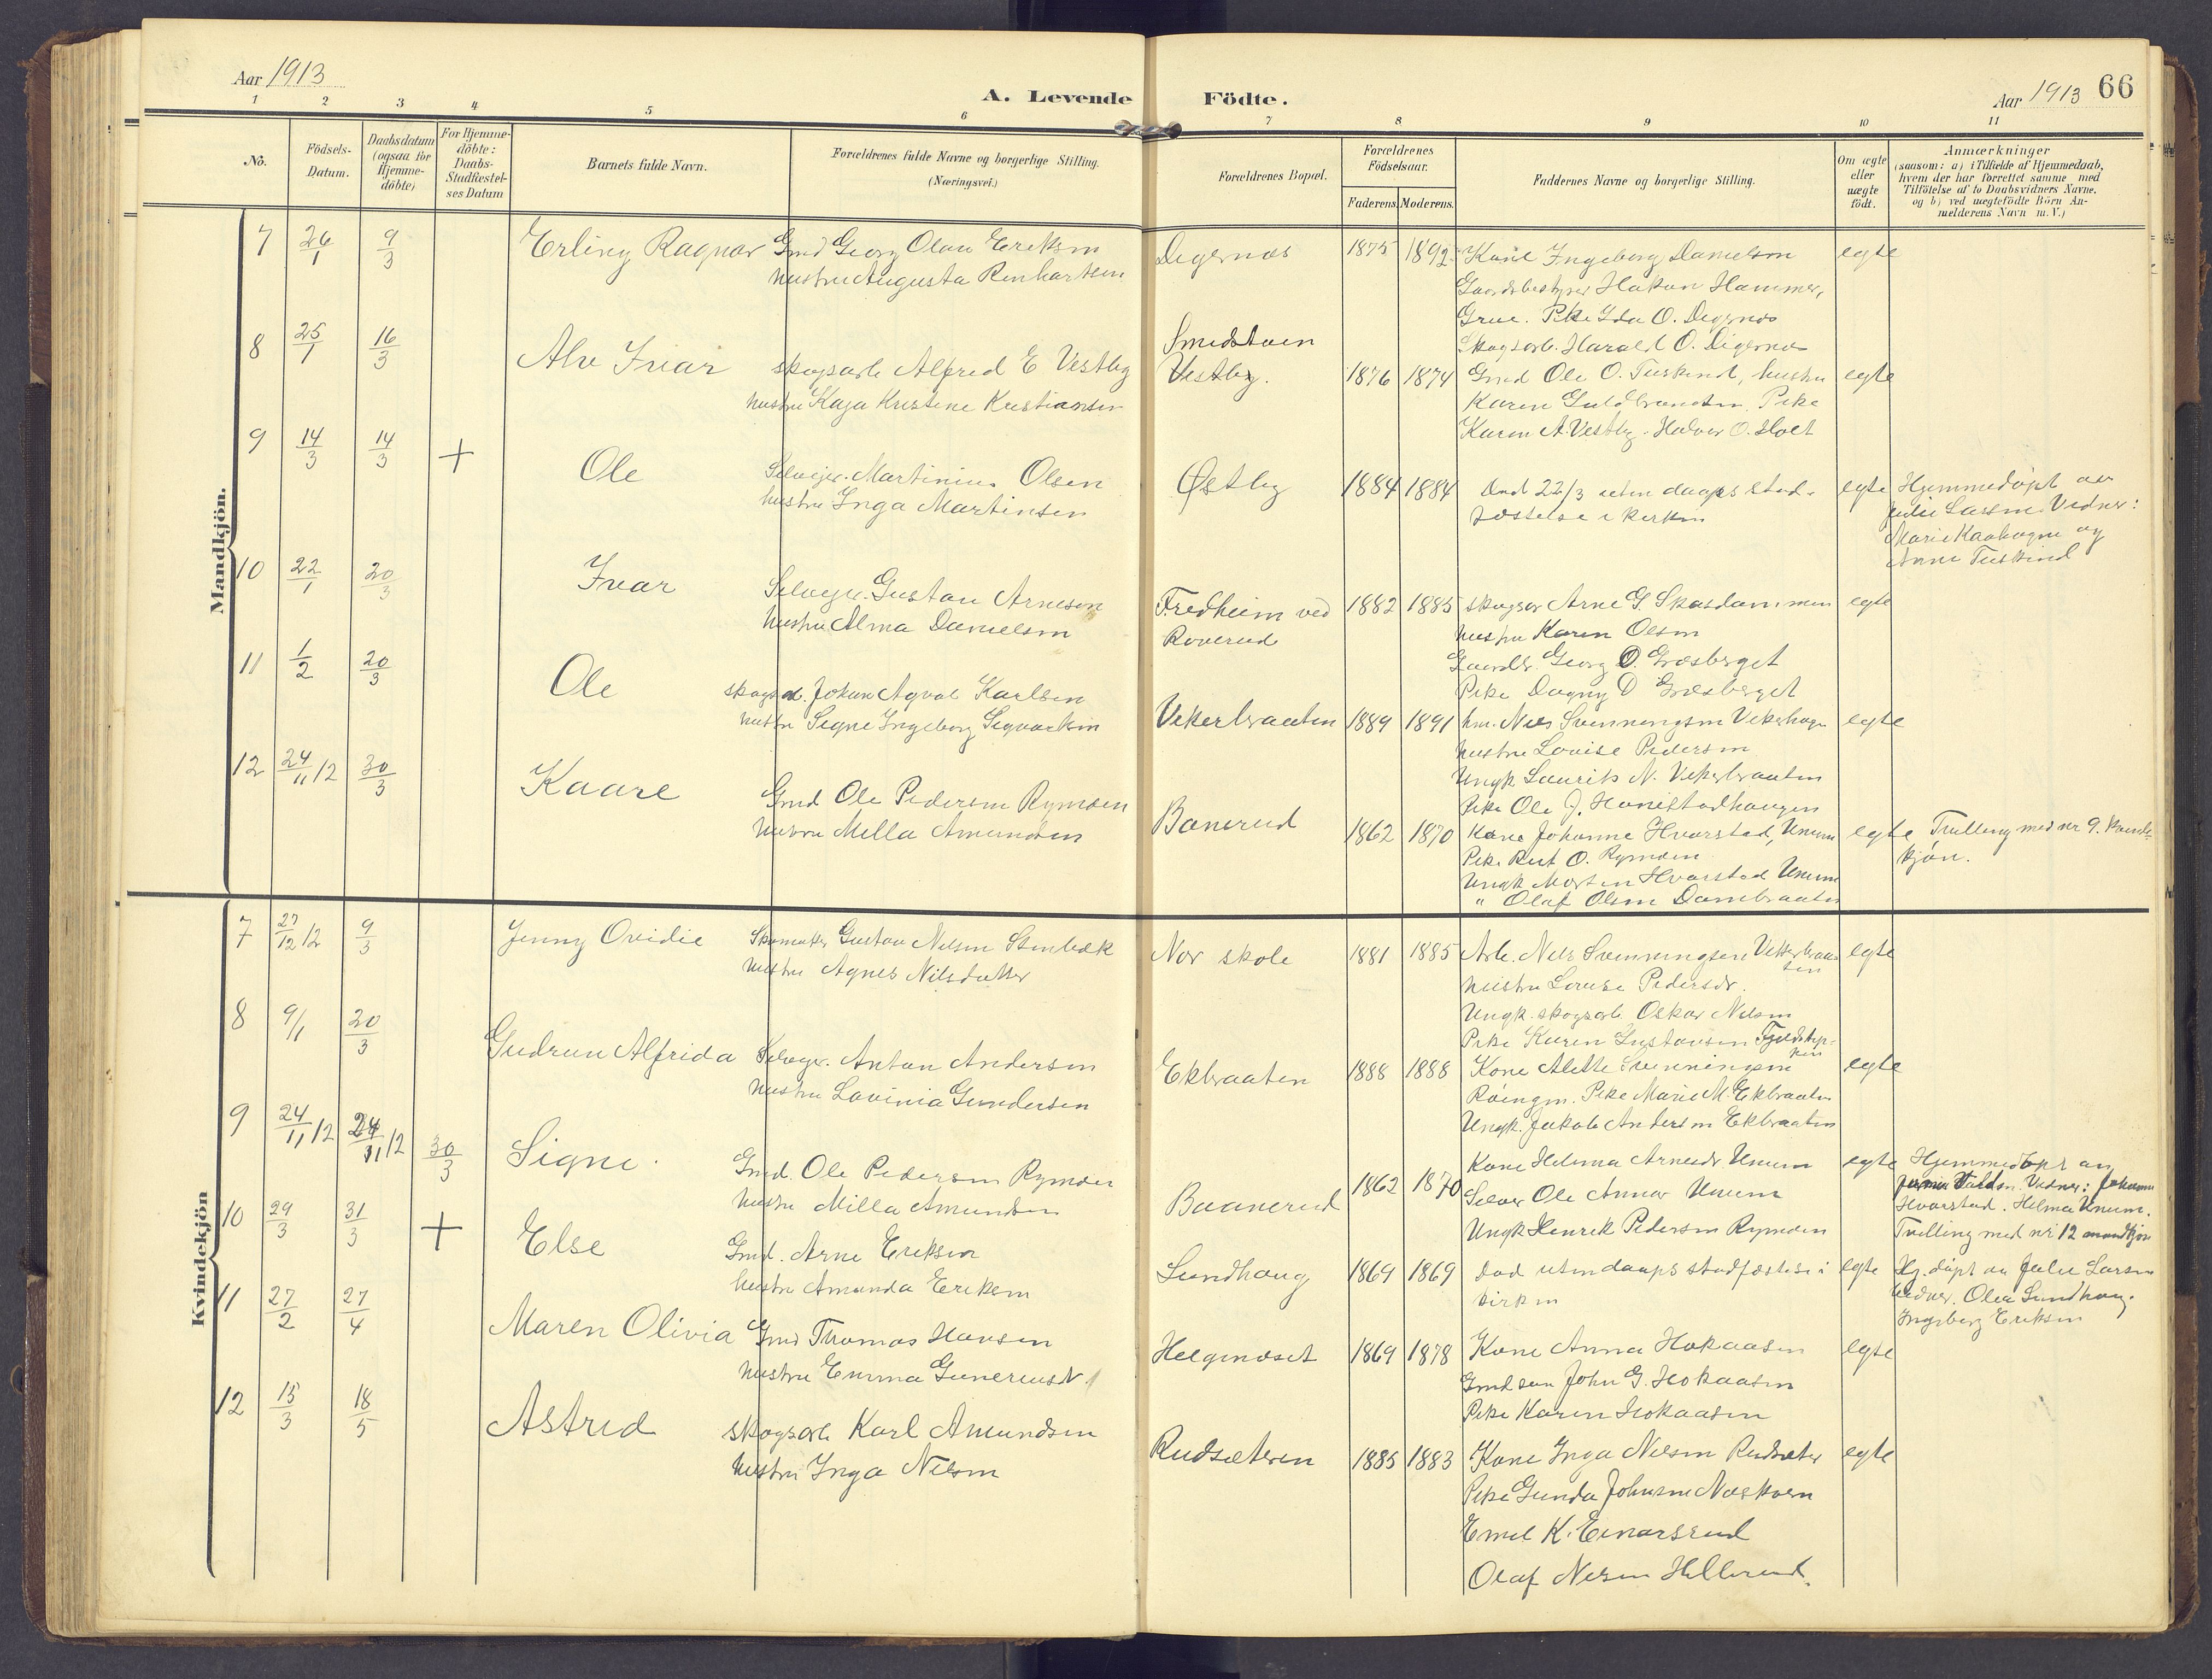 Aar 1913
A. Levende Födte.
Aar 1913 66
1 2 3 4 5 6 7 8 9 10 11
No.
Födsels-Datum.
Daabsdatum (ogsaa for Hjemme-döbte)
For Hjemme-döbte: Daabs-Stadfæstel-ses Datum
Barnets fulde Navn.
Forældrenes fulde Navne og borgerlige Stilling. (Næringsvei.)
Forældrenes Bopæl.
Forældrenes Födselsaar.
Faderens. Moderens.
Faddernes Navne og borgerlige Stilling.
Om ægte eller uægte födt.
Anmærkninger
(saasom: a) i Tilfælde af Hjemmedaab,
hvem der har forrettet samme med
Tilföielse af to Daabsvidners Navne,
og b) ved uægtefödte Börn An-
melderens Navn m. V.)
Mandkjön.
7 26/1 9/3 Erling Ragnar Gmd Georg Olau Eriksen Digernes 1875 1892 Kone Ingeborg Danielsen egte
hustru Augusta Renhartsen Gaardsbestyrer Hakon Hammer,
Grue. Pike Ida O. Digernes
Skogsarb. Harald O. Digernes
8 25/1 16/3 Alv Ivar skogsarb Alfred E Vestby Smedstuen
Vestby. 1876 1874 Gmd Ole O. Tuskind, hustru egte
hustru Kaja Kristine Kristiansen Karen Guldbrandsen. Pike
Karen A. Vestby. Halvor O. Holt
9 14/3 14/3 + Ole Selveier. Martinius Olsen Østby 1884 1884 Död 22/3 uten daaps stad- egte Hjemmedöpt av
hustru Inga Martinsen fæstelse i kirken Julie Larsen. Vidner:
Marie Kaahagne og
Anne Tuskind
10 22/1 20/3 Ivar Selveier. Gustav Arnesen Fredheim ved 1882 1885 skogsar Arne G. Skasdammen egte
hustru Alma Danielsen Roverud hustru Karen Olsen
Gaardbr. Georg D. Græsberget
Pike Dagny D Græsberget
11 1/2 20/3 Ole skogsa. Johan Agval Karlsen Vekerbraaten 1889 1891 hm. Nils Svenningsen Vekerhagn egte
hustru Signe Ingeborg Sigvartsen hustru Lovise Pedersen
Ungk Laurits N. Vekerbraaten
Pike Ole J. Hanestadhaugen
12 24/11 12 30/3 Kaare Gmd Ole Pedersen Rymoen Banerud 1862 1870 Kone Johanne Hvarstad, Unum egte Tvilling med nr 9. kvinde-
hustru Milla Amundsen Pike Rut O. Rymoen kjön.
Ungk Morten Hvarstad Unum
" Olaf Olsen Dambraaten
Kvindekjön
7 27/12 12 9/3 Jenny Ovidie Skomaker Gustav Nilsen Stenbæk Nor skole 1881 1885 Arb. Nils Svenningsen Vekerbraa- egte
hustru Agnes Nilsdatter ten
hustru Lovise Pedersdr.
Ungk. skogsarb Oskar Nilsen
Pike Karen Gustavsen
8 9/1 20/3 Gudrun Alfrida Selveier. Anton Andersen Ekbraaten 1888 1888 Kone Alette Svenningsen egte
hustru Lovinia Gundersen Röingen. Pike Marie M. Ekbraaten
Ungk. Jakob Andersen Ekbraaten
9 24/11 12 24/11 12 30/3 Signe. Gmd. Ole Pedersen Rymoen Baanerud 1862 1870 Kone Helma Arnesdr Unum egte Hjemmedöpt av
hustru Milla Amundsen Selveier Ole Annar Unum Vidner: Johanne
Ungk Henrik Pedersen Rymoen Hvarstad. Helma Unum.
Tvilling med nr 12 mandkjön
10 29/3 31/3 + Else Gmd. Arne Eriksen Sundhaug 1869 1869 Död uten daaps stadfæstelse i egte Hj. döpt av Julie Larsen
hustru Amanda Eriksen kirken Vidner. Olea Sundhaug.
Ingeborg Eriksen
11 27/2 27/4 Maren Olivia Gmd Thomas Hansen Helgenæset 1869 1878 Kone Anna Hokaasen egte
hustru Emma Guneriusdr. Gmd søn John G. Hokaasen
Pike Karen Hokaasen
12 15/3 18/5 Astrid skogsarb Karl Amundsen Rudsæteren 1885 1883 Kone Inga Nilsen Rudsæter egte
hustru Inga Nilsen Pike Gunda Johnsen Næskoen
Emil K. Einarsrud
Olaf Nilsen Hellerud.